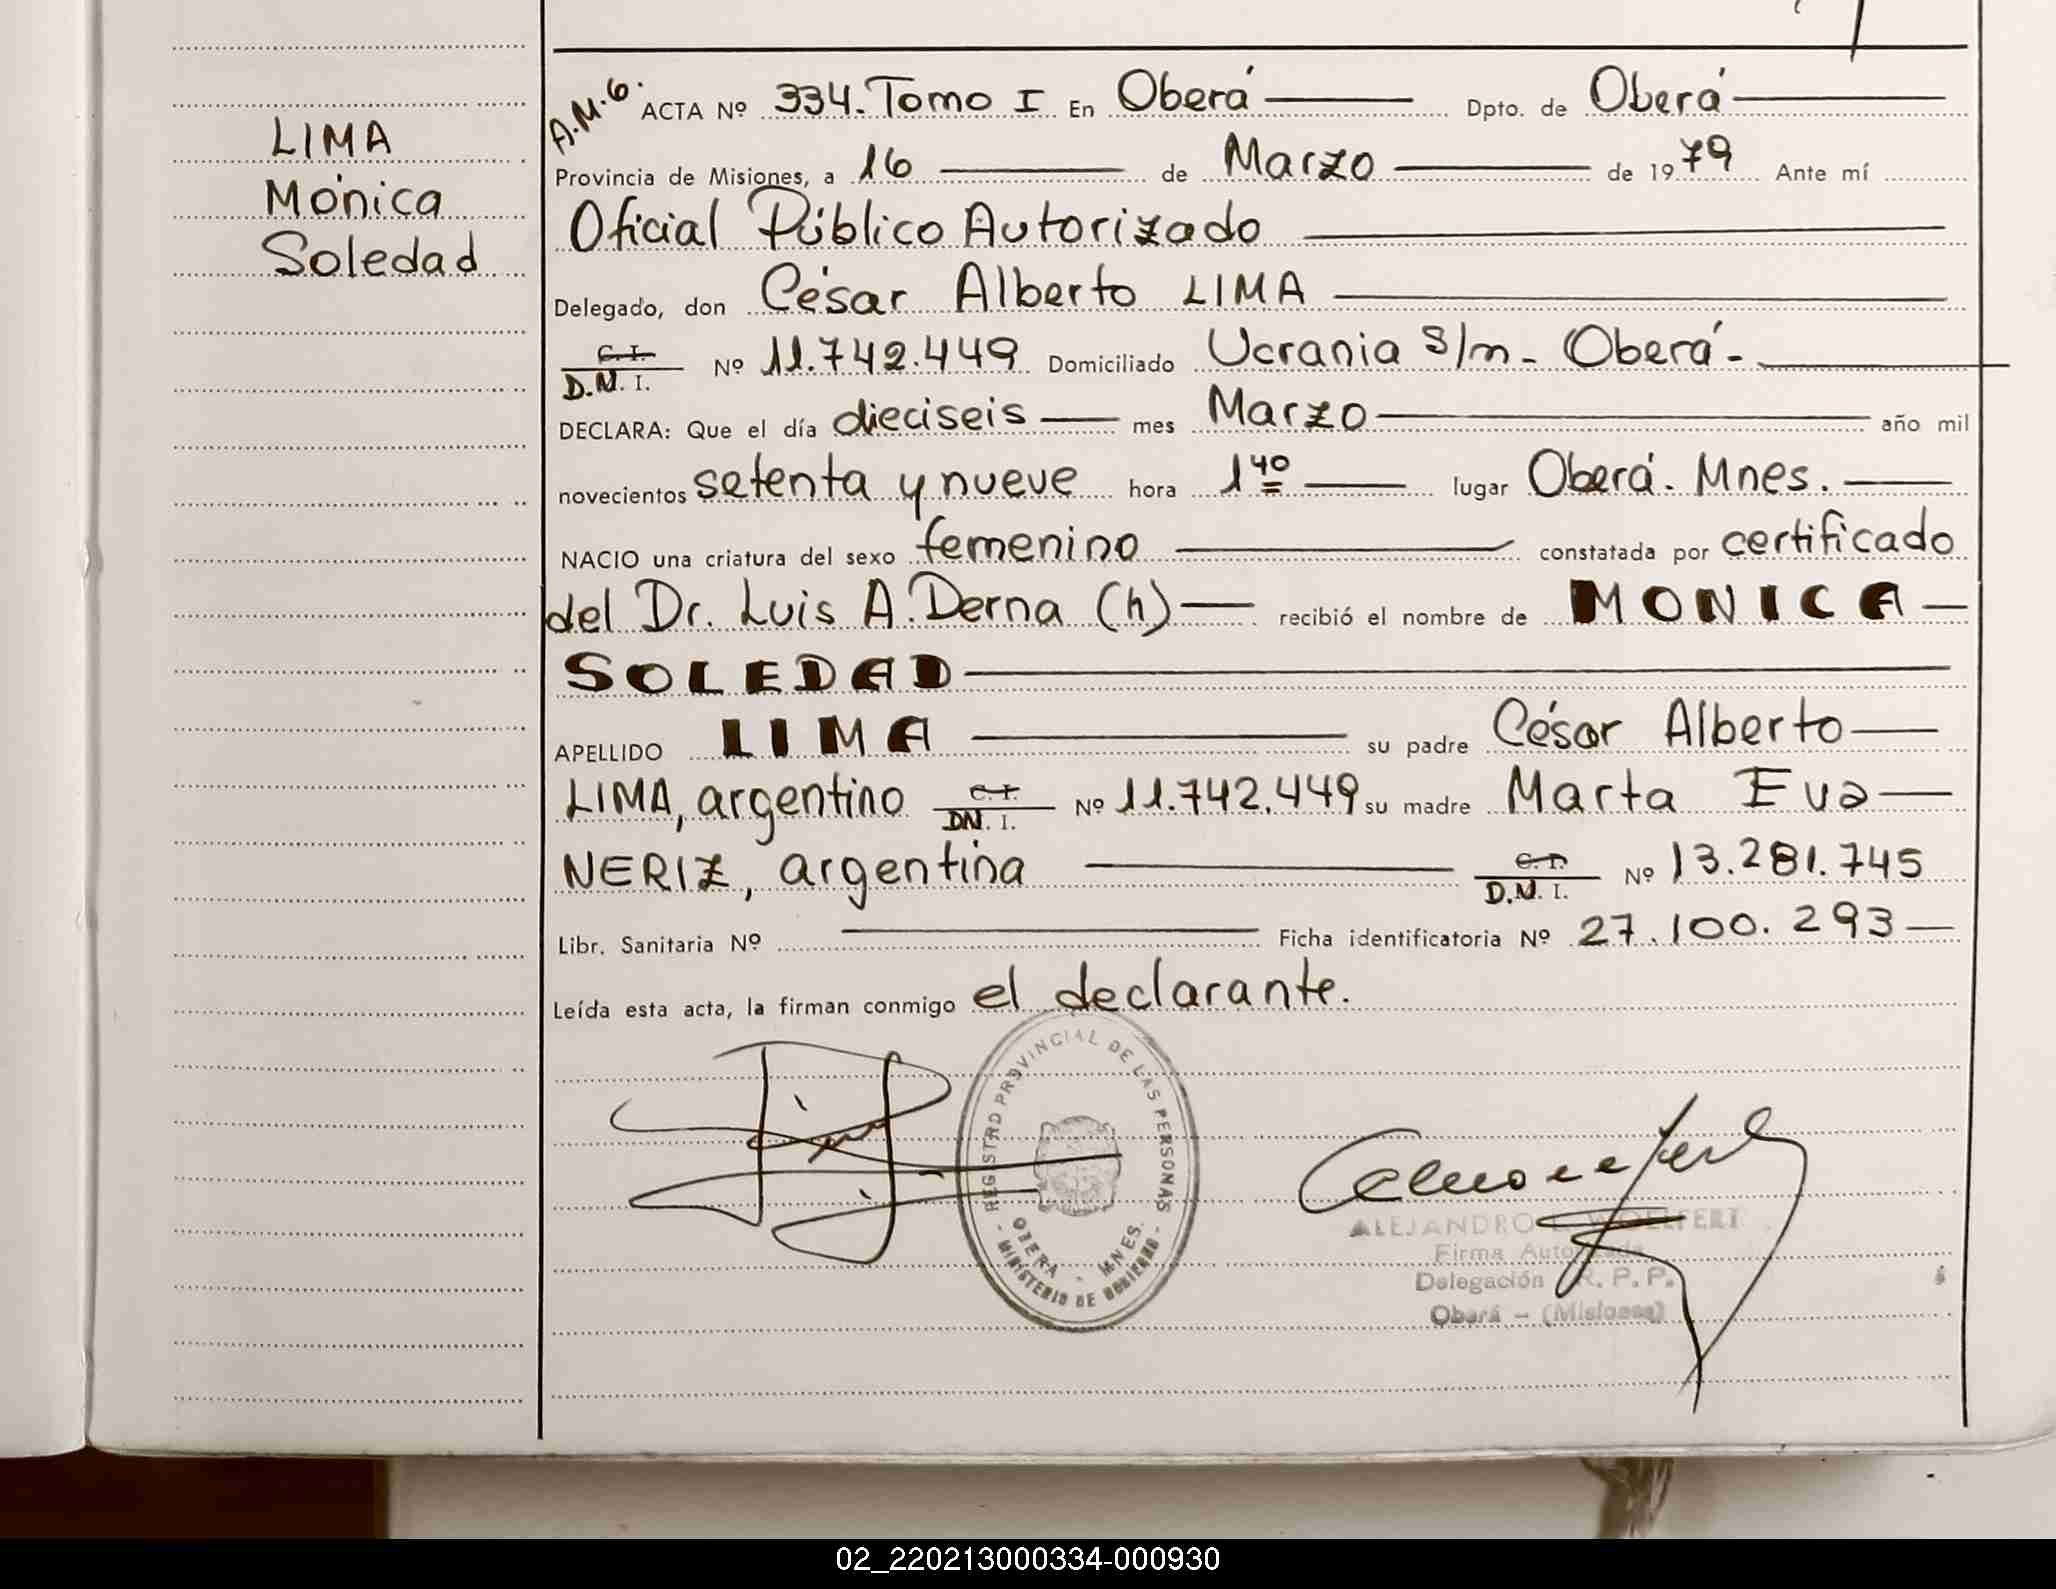 LIMA
Mónica
Soledad
A.M.G.
ACTA Nº 334. Tomo I En Oberá Dpto. de Oberá
Provincia de Misiones, a 16 de Marzo de 1979 Ante mí
Oficial Público Autorizado
Delegado, don César Alberto LIMA
C. I.
D.N. I. Nº 11.742.449 Domiciliado Ucrania s/n - Oberá -
DECLARA: Que el día dieciseis mes Marzo año mil
novecientos setenta y nueve hora 1 40 lugar Oberá. Mnes.
NACIO una criatura del sexo femenino constatada por certificado
del Dr. Luis A. Derna (h) recibió el nombre de MONICA
SOLEDAD
APELLIDO LIMA su padre César Alberto
LIMA, argentino C. I. DN. I. Nº 11.742.449 su madre Marta Eva
NERIZ, argentina C. I. D.N. I. Nº 13.281.745
Libr. Sanitaria Nº Ficha identificatoria Nº 27.100.293
Leída esta acta, la firman conmigo el declarante.
REGISTRO PROVINCIAL DE LAS PERSONAS
OBERA - MNES.
- MINISTERIO DE GOBIERNO -
ALEJANDRO WOLFERT
Firma Autorizada
Delegación R. P. P.
Oberá - (Misiones)
02_220213000334-000930